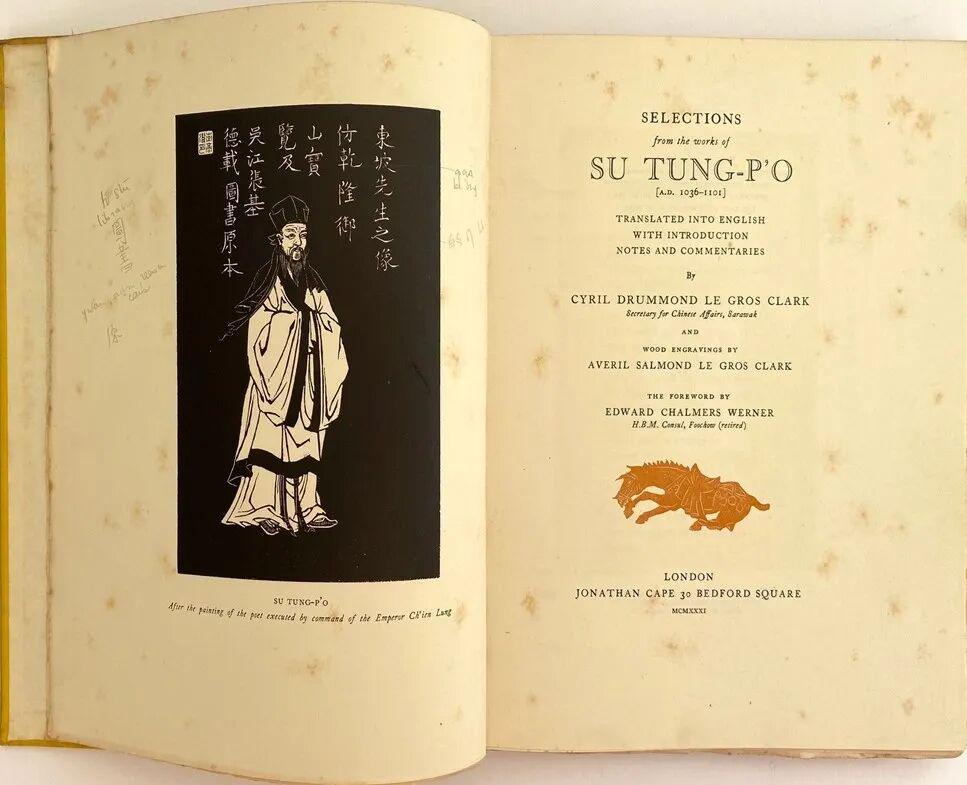 東坡先生之像
仿乾隆御
山寶
覽及
吳江張基
德載圖書原本
library
圖書
SU TUNG-P'O
After the painting of the poet executed by command of the Emperor Ch'ien Lung
SELECTIONS
from the works of
SU TUNG-P'O
[A.D. 1036-1101]
TRANSLATED INTO ENGLISH
WITH INTRODUCTION
NOTES AND COMMENTARIES
By
CYRIL DRUMMOND LE GROS CLARK
Secretary for Chinese Affairs, Sarawak
AND
WOOD ENGRAVINGS BY
AVERIL SALMOND LE GROS CLARK
THE FOREWORD BY
EDWARD CHALMERS WERNER
H.B.M. Consul, Foochow (retired)
LONDON
JONATHAN CAPE 30 BEDFORD SQUARE
MCMXXXI